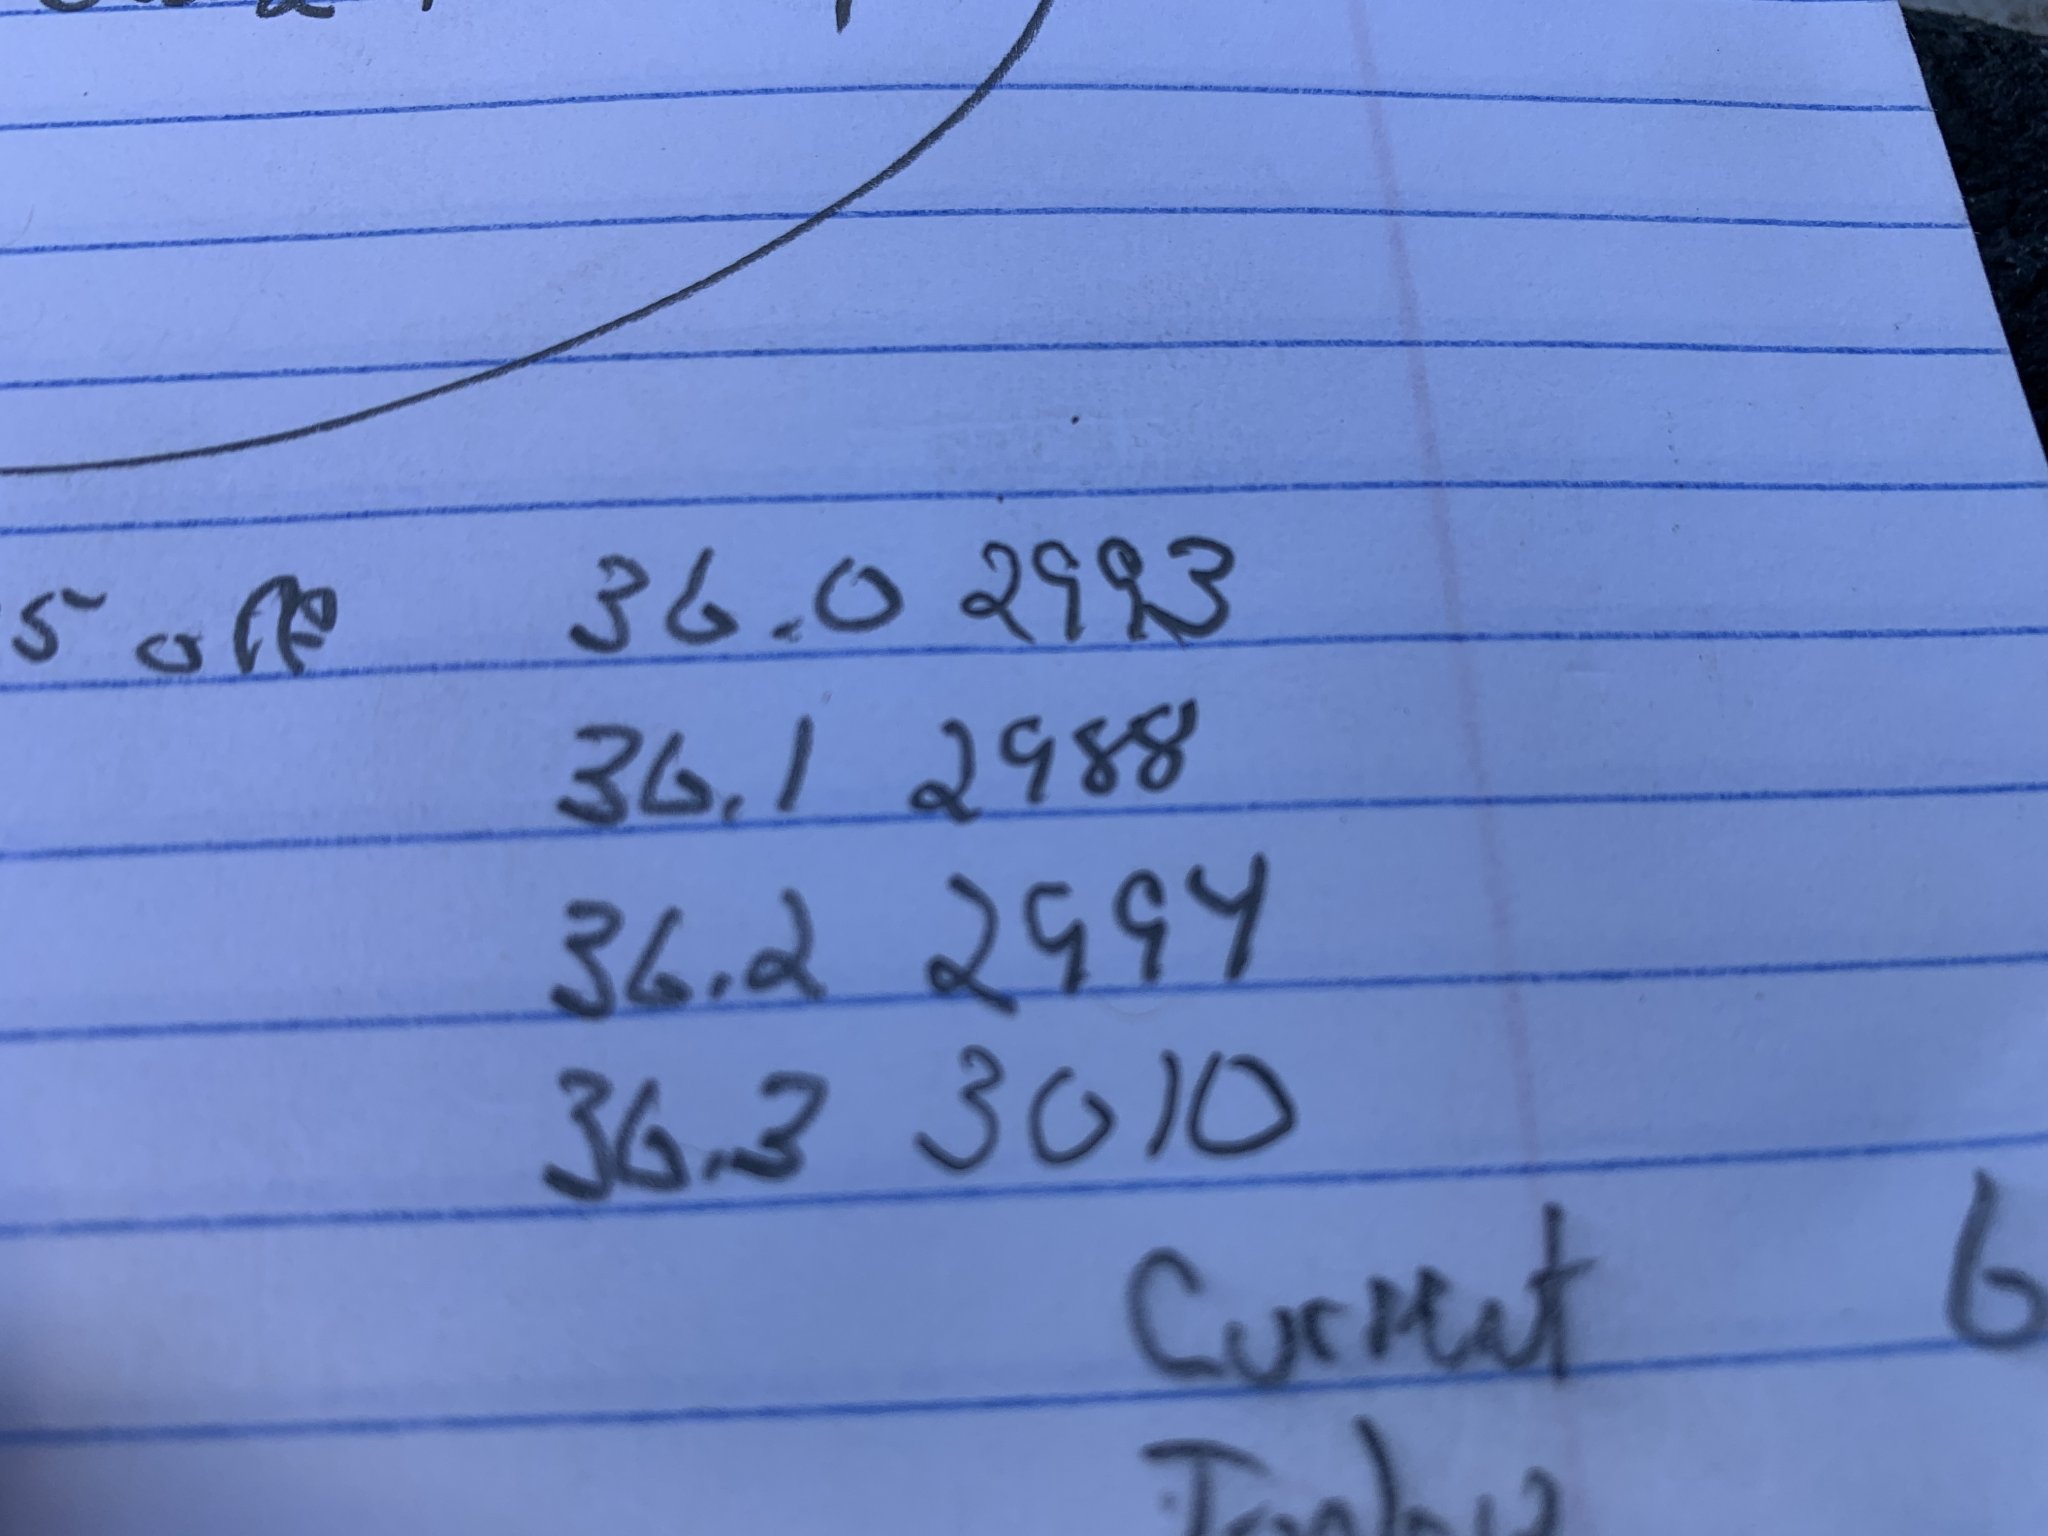 5 off 36.0 2993
36.1 2988
36.2 2994
36.3 3010
Current 6